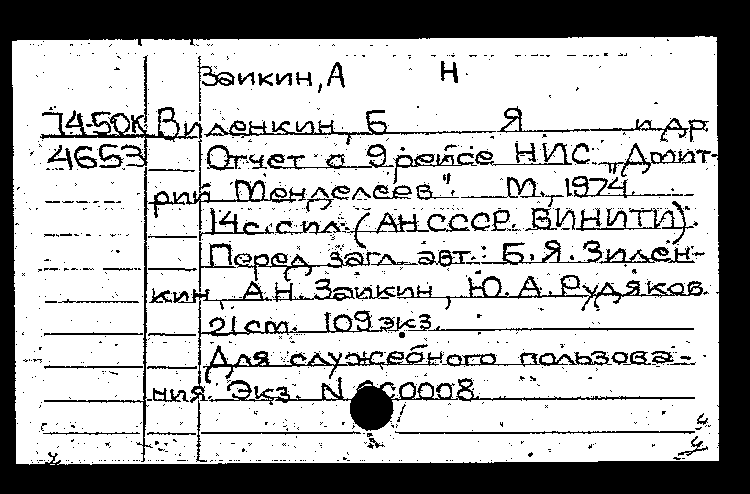 Заикин, А Н
74-50К Виленкин, Б Я и др
4653 Отчет о 9 рейсе НИС „Дмит-
рий Менделеев". М., 1974.
14с. с ил. (АН СССР. ВИНИТИ).
Перед загл авт.: Б. Я. Зилен-
кин, А.Н. Заикин, Ю. А. Рудяков
21 см. 109 экз.
Для служебного пользова-
ния. Экз. N 000008